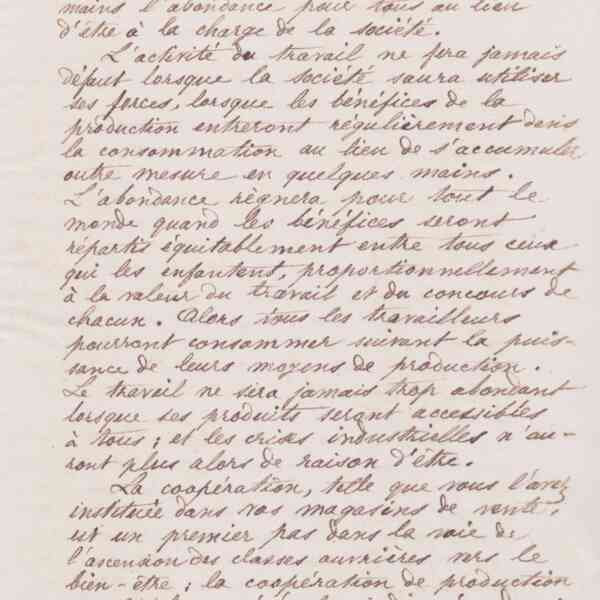 mains l'abondance pour tous au lieu
d'être à la charge de la société.
L'activité du travail ne fera jamais
défaut lorsque la société saura utiliser
ses forces, lorsque les bénéfices de la
production entreront régulièrement dans
la consommation au lieu de s'accumuler
outre mesure en quelques mains.
L'abondance règnera pour tout le
monde quand les bénéfices seront
répartis équitablement entre tous ceux
qui les enfantent, proportionnellement
à la valeur du travail et du concours de
chacun. Alors tous les travailleurs
pourront consommer suivant la puis-
sance de leurs moyens de production.
Le travail ne sera jamais trop abondant
lorsque ses produits seront accessibles
à tous ; et les crises industrielles n'au-
ront plus alors de raison d'être.
La coopération, telle que vous l'avez
instituée dans vos magasins de vente,
est un premier pas dans la voie de
l'ascension des classes ouvrières vers le
bien-être ; la coopération de production